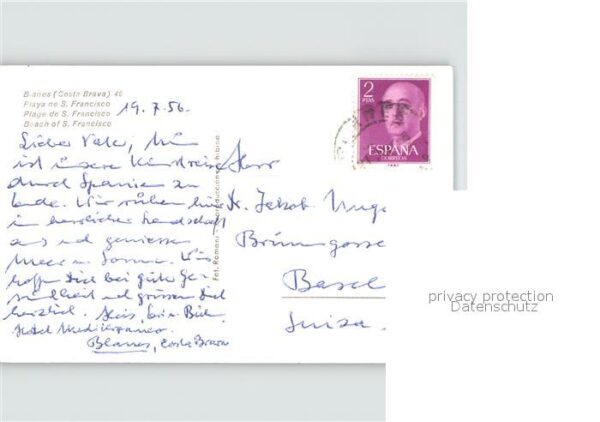 Blanes (Costa Brava) 40
Playa de S. Francisco
Plage de S. Francisco
Beach of S. Francisco
19.7.56.
Lieber Vater, Nun
ist unsere
durch Spanien zu
Ende. Wir ruhen hier
in herrlicher Landschaft
aus und geniessen
Meer und Sonne. Wir
hoffen Dich bei guter Ge-
sundheit und grüssen Dich
herzlich.
Hotel Mediterraneo
Blanes, Costa Brava
Fot. Romani
2
PTAS
ESPAÑA
CORREOS
Herr
Dr. Jakob
Brunngasse
Basel
Suiza.
privacy protection
Datenschutz